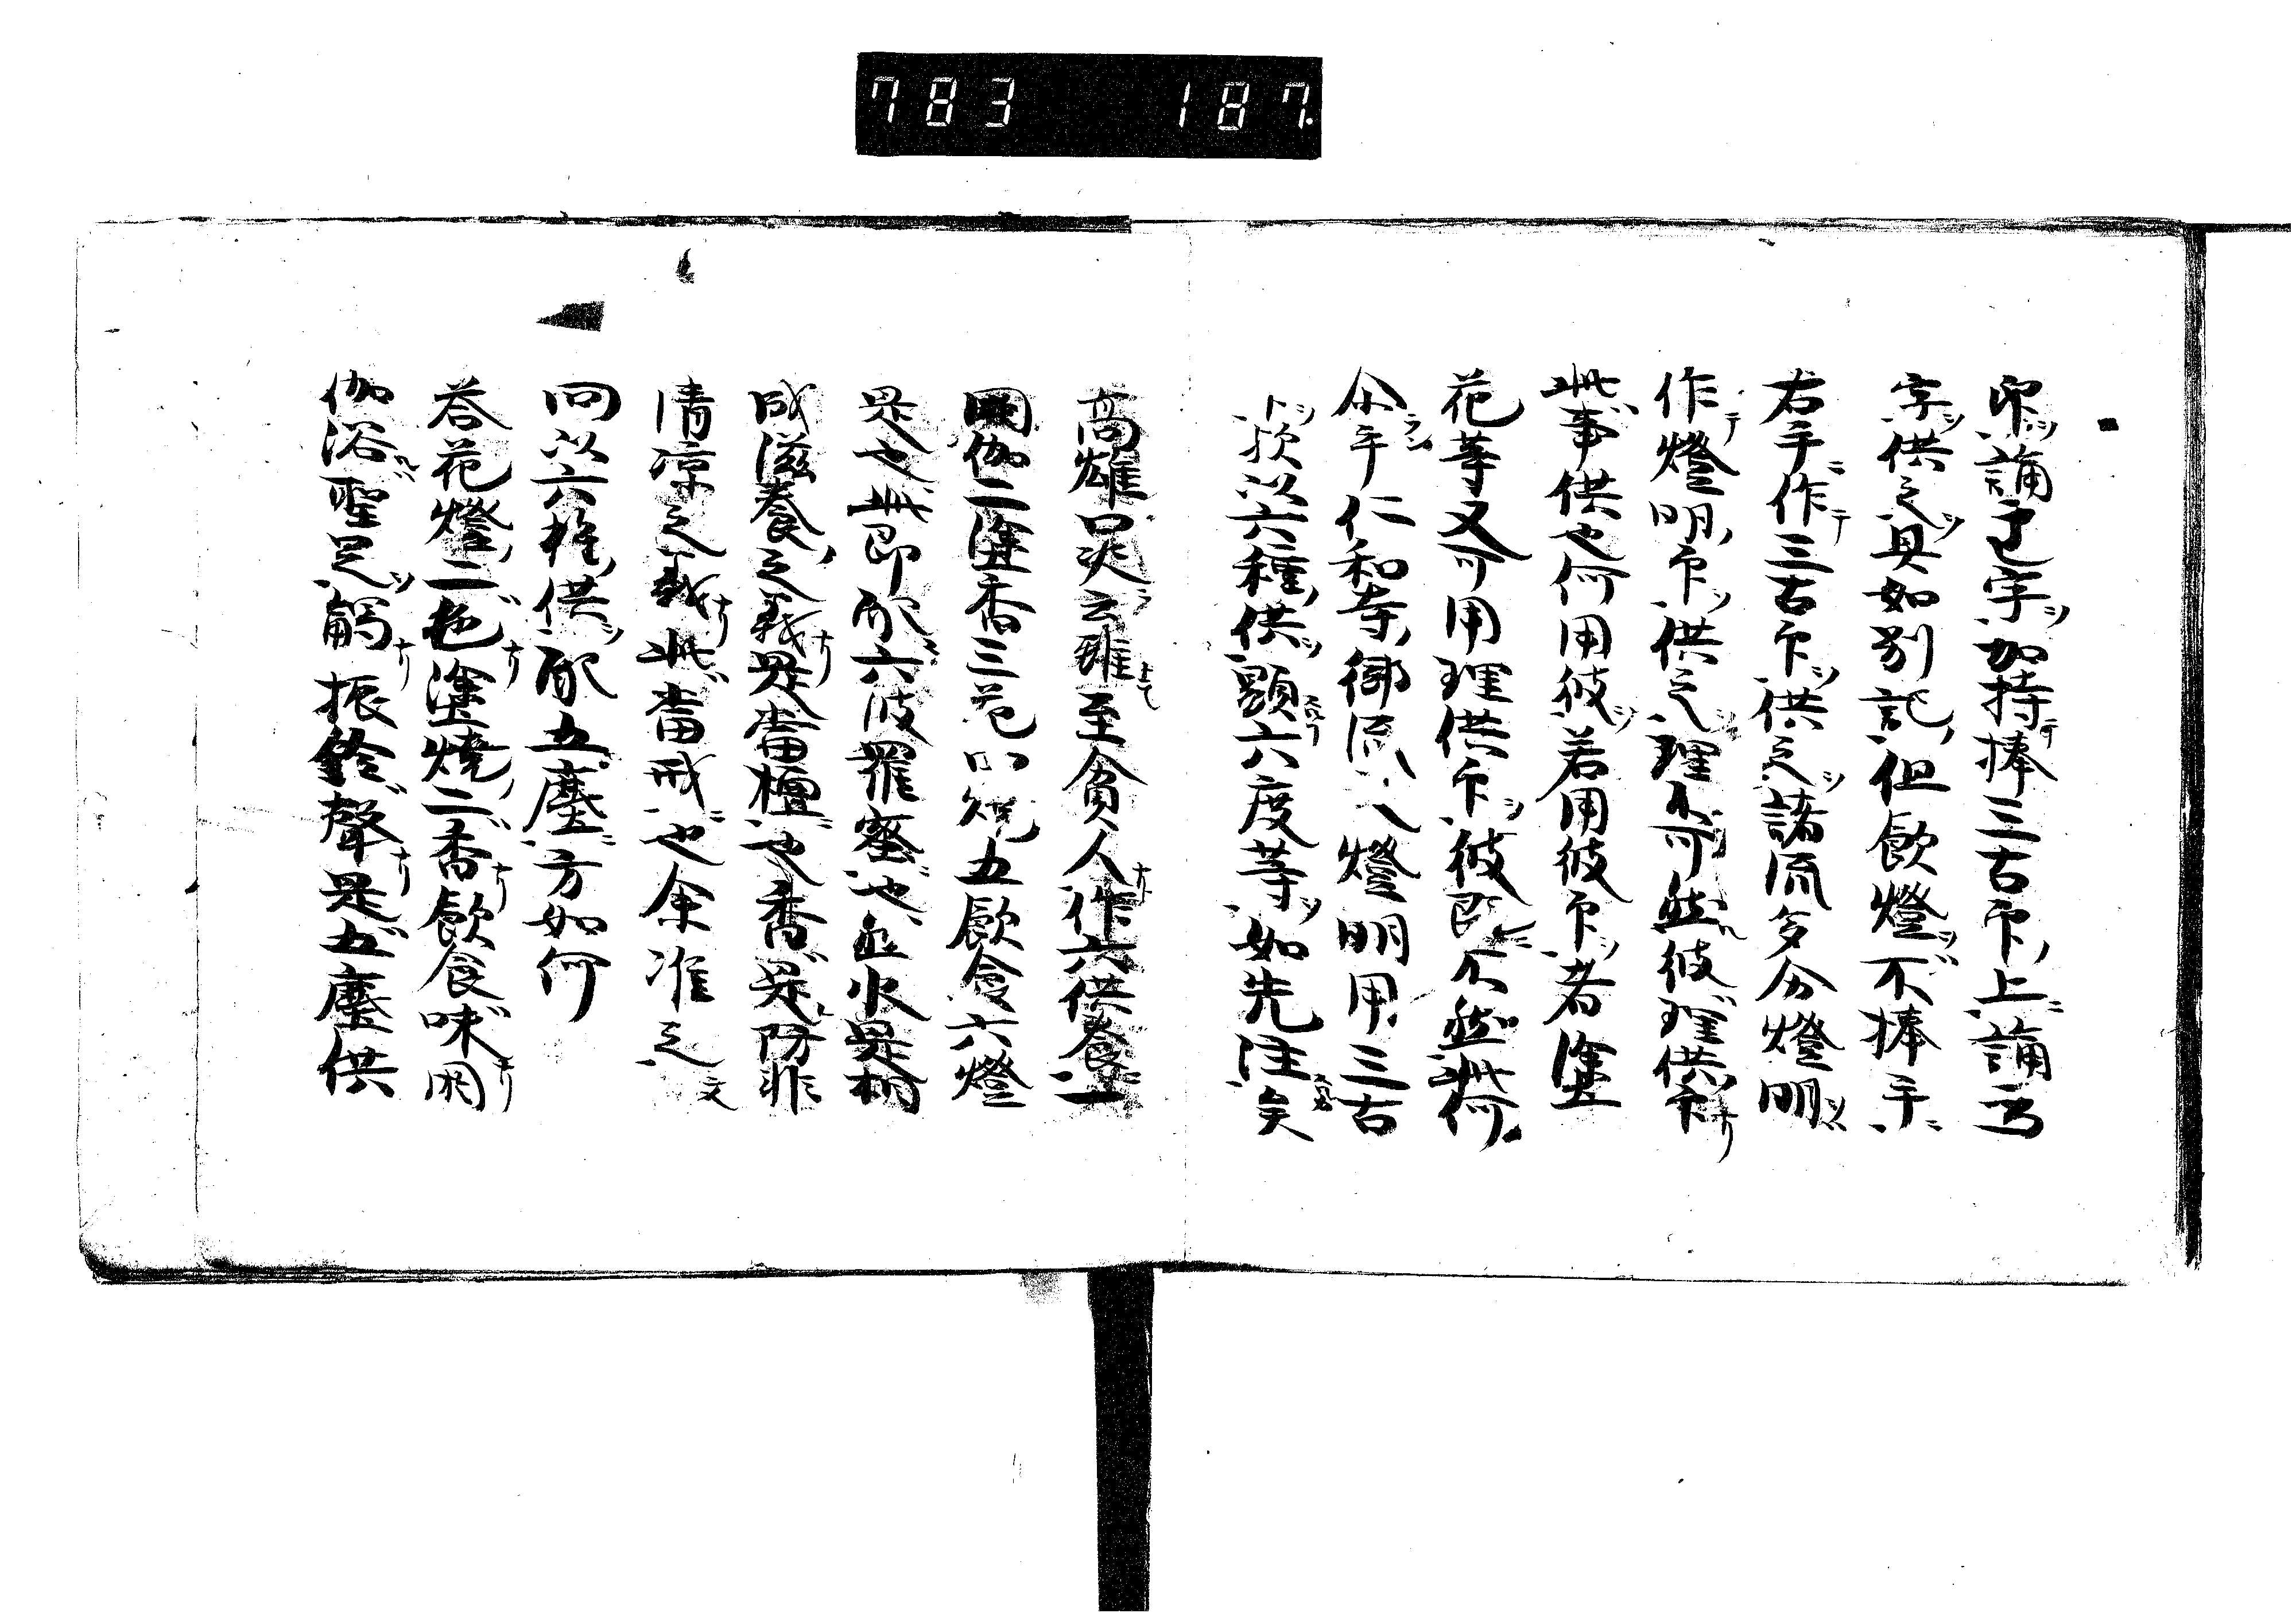 783 187.
印誦了字加持捧三古印上誦
字供之具如別記但飲燈不捧手
右手作三古印供之諸流多分燈明
作燈明印供之理不可然彼理供印
此事供也何用彼若用彼印者塗
花等又可用理供印彼既不然此何
尒乎仁和寺御流八燈明用三古
以六種供顕六度等如先注矣
高雄口决云雖至貧人作六供養一
閼伽二塗香三花四焼五飲食六燈
是也此即配六波羅蜜也水是
成滋養之義是當檀也香是防非
清凉之義此當戒也余准之文
問以六種供配五塵方如何
答花燈二色塗焼二香飲食味閼
伽浴聖足觸振鈴聲是五塵供